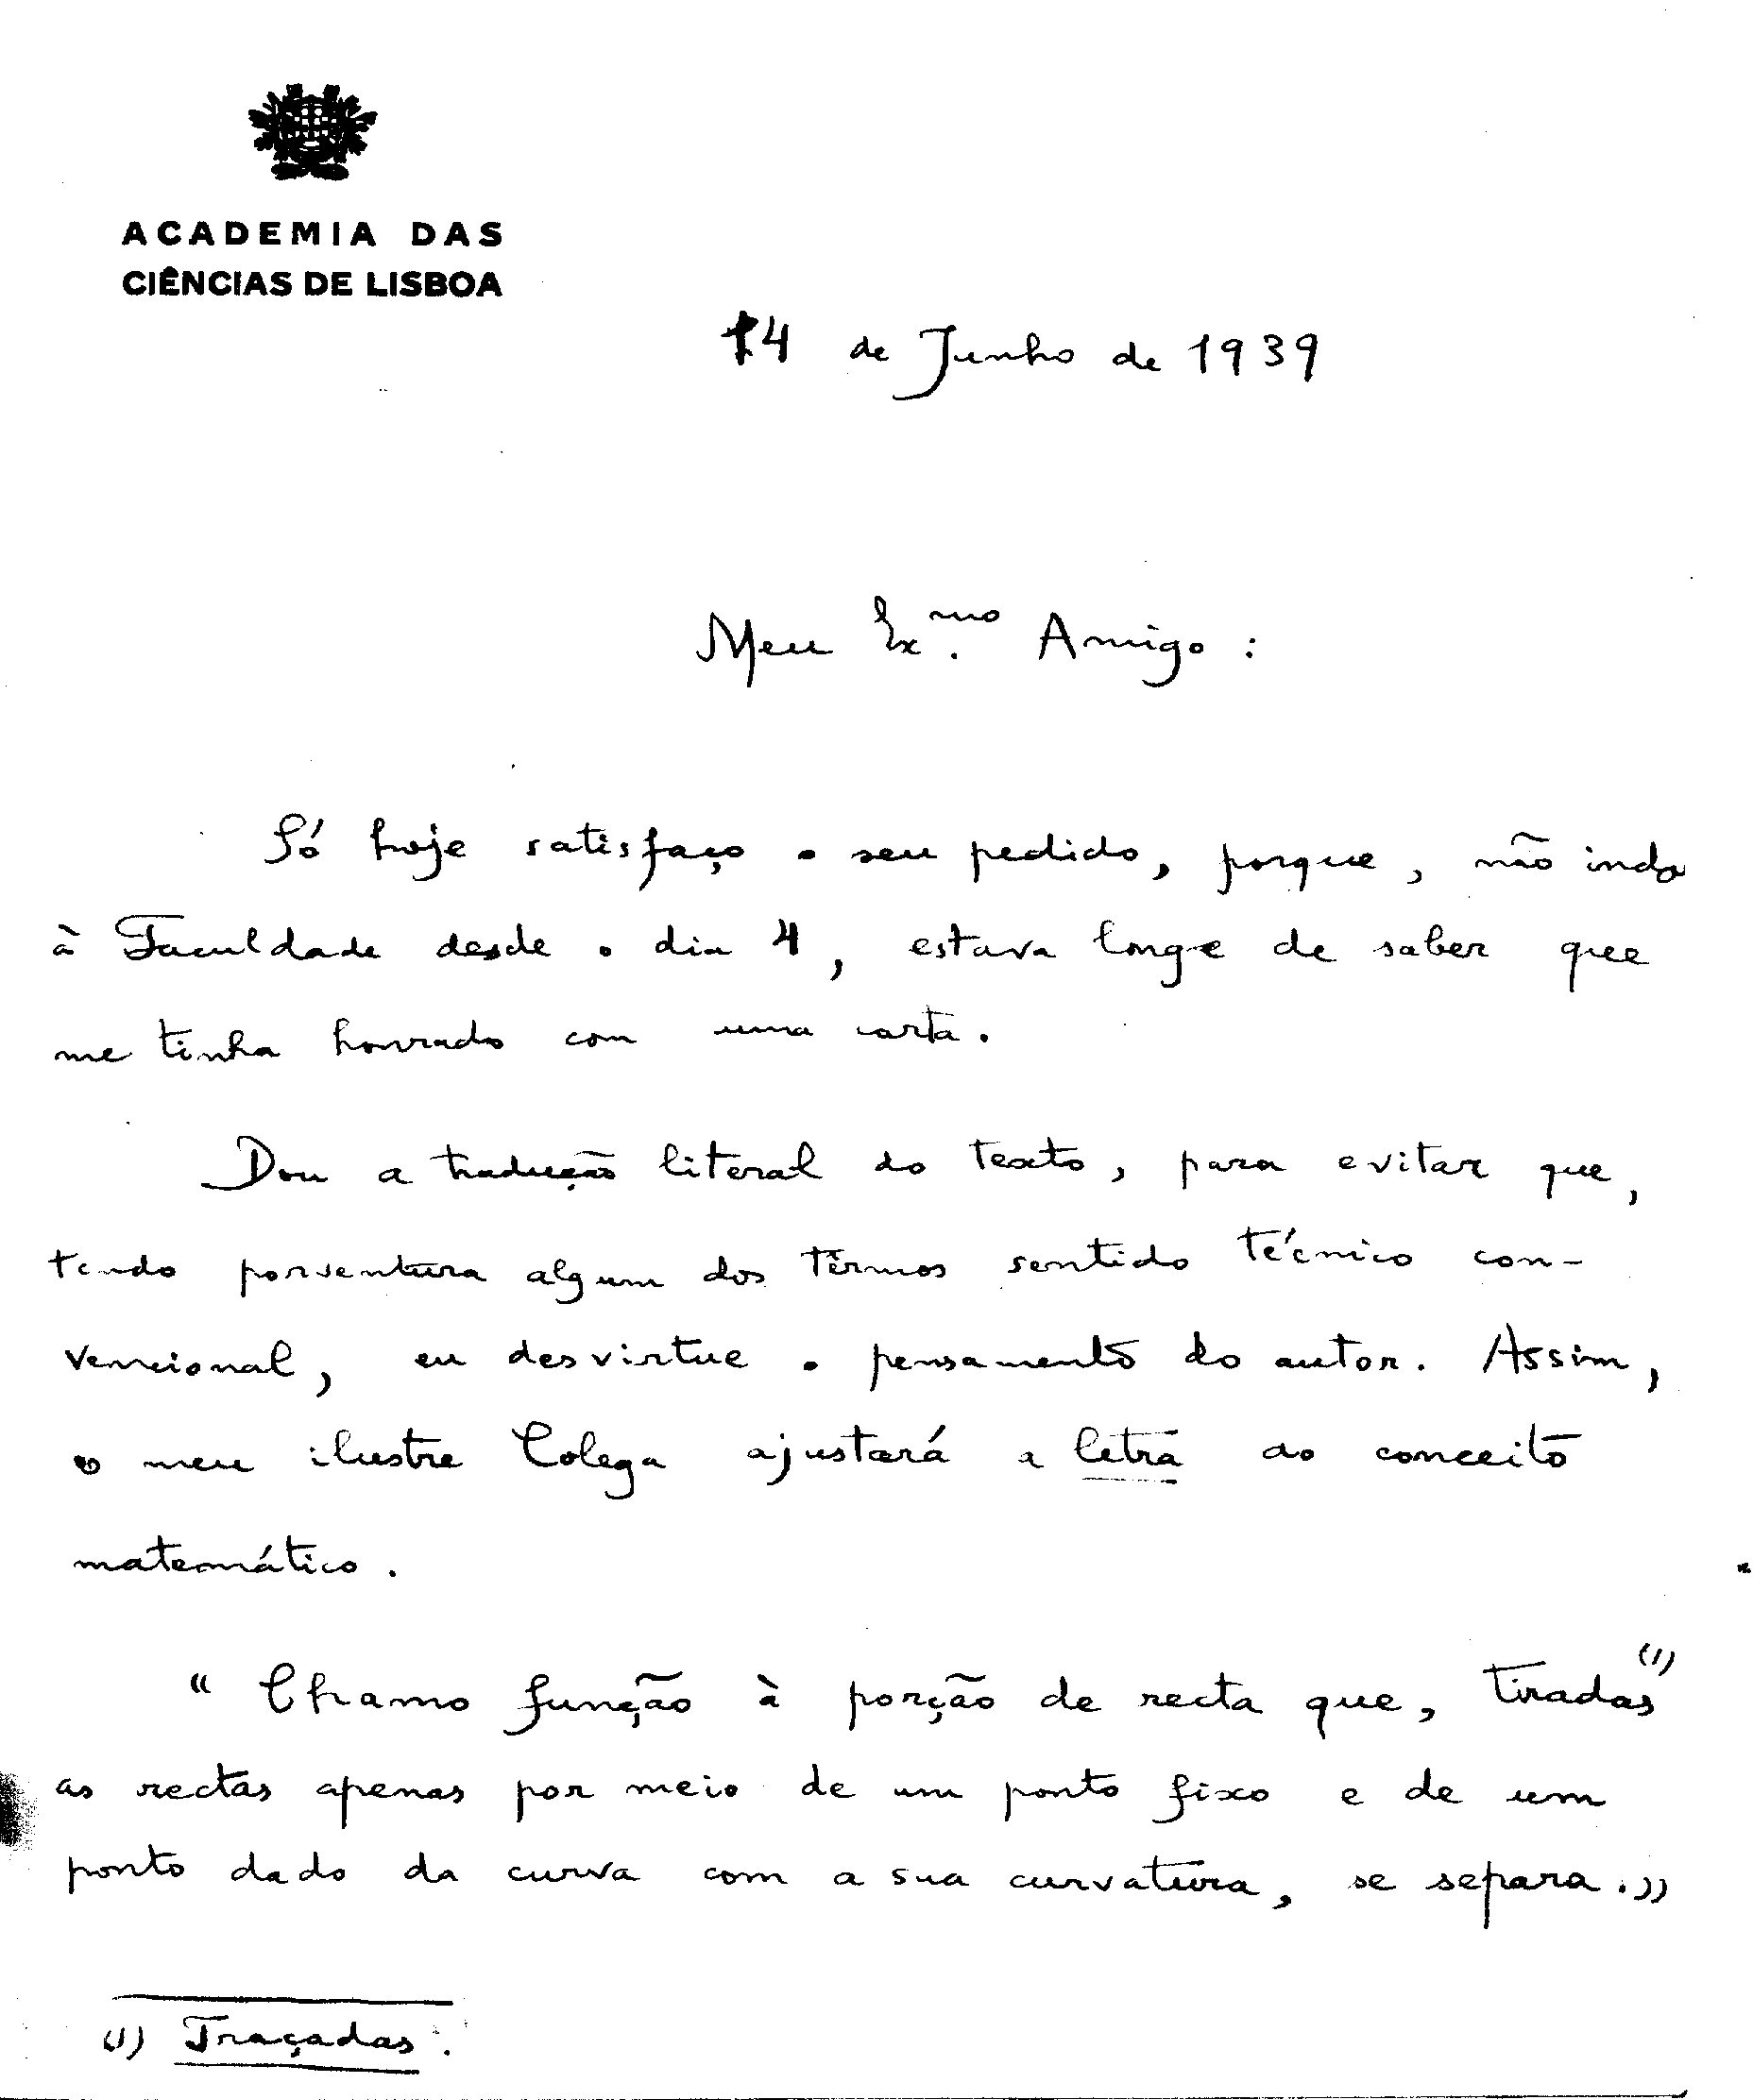 ACADEMIA DAS
CIÊNCIAS DE LISBOA
14 de Junho de 1939
Meu Ex.mo Amigo:
Só hoje satisfaço o seu pedido, porque, não indo
à Faculdade desde o dia 4, estava longe de saber que
me tinha honrado com uma carta.
Dou a tradução literal do texto, para evitar que,
tendo porventura algum dos têrmos sentido técnico con-
vencional, eu desvirtue o pensamento do autor. Assim,
o meu ilustre Colega ajustará a letra ao conceito
matemático.
"Chamo função à porção de recta que, tiradas (1)
as rectas apenas por meio de um ponto fixo e de um
ponto dado da curva com a sua curvatura, se separa.»
(1) Traçadas.